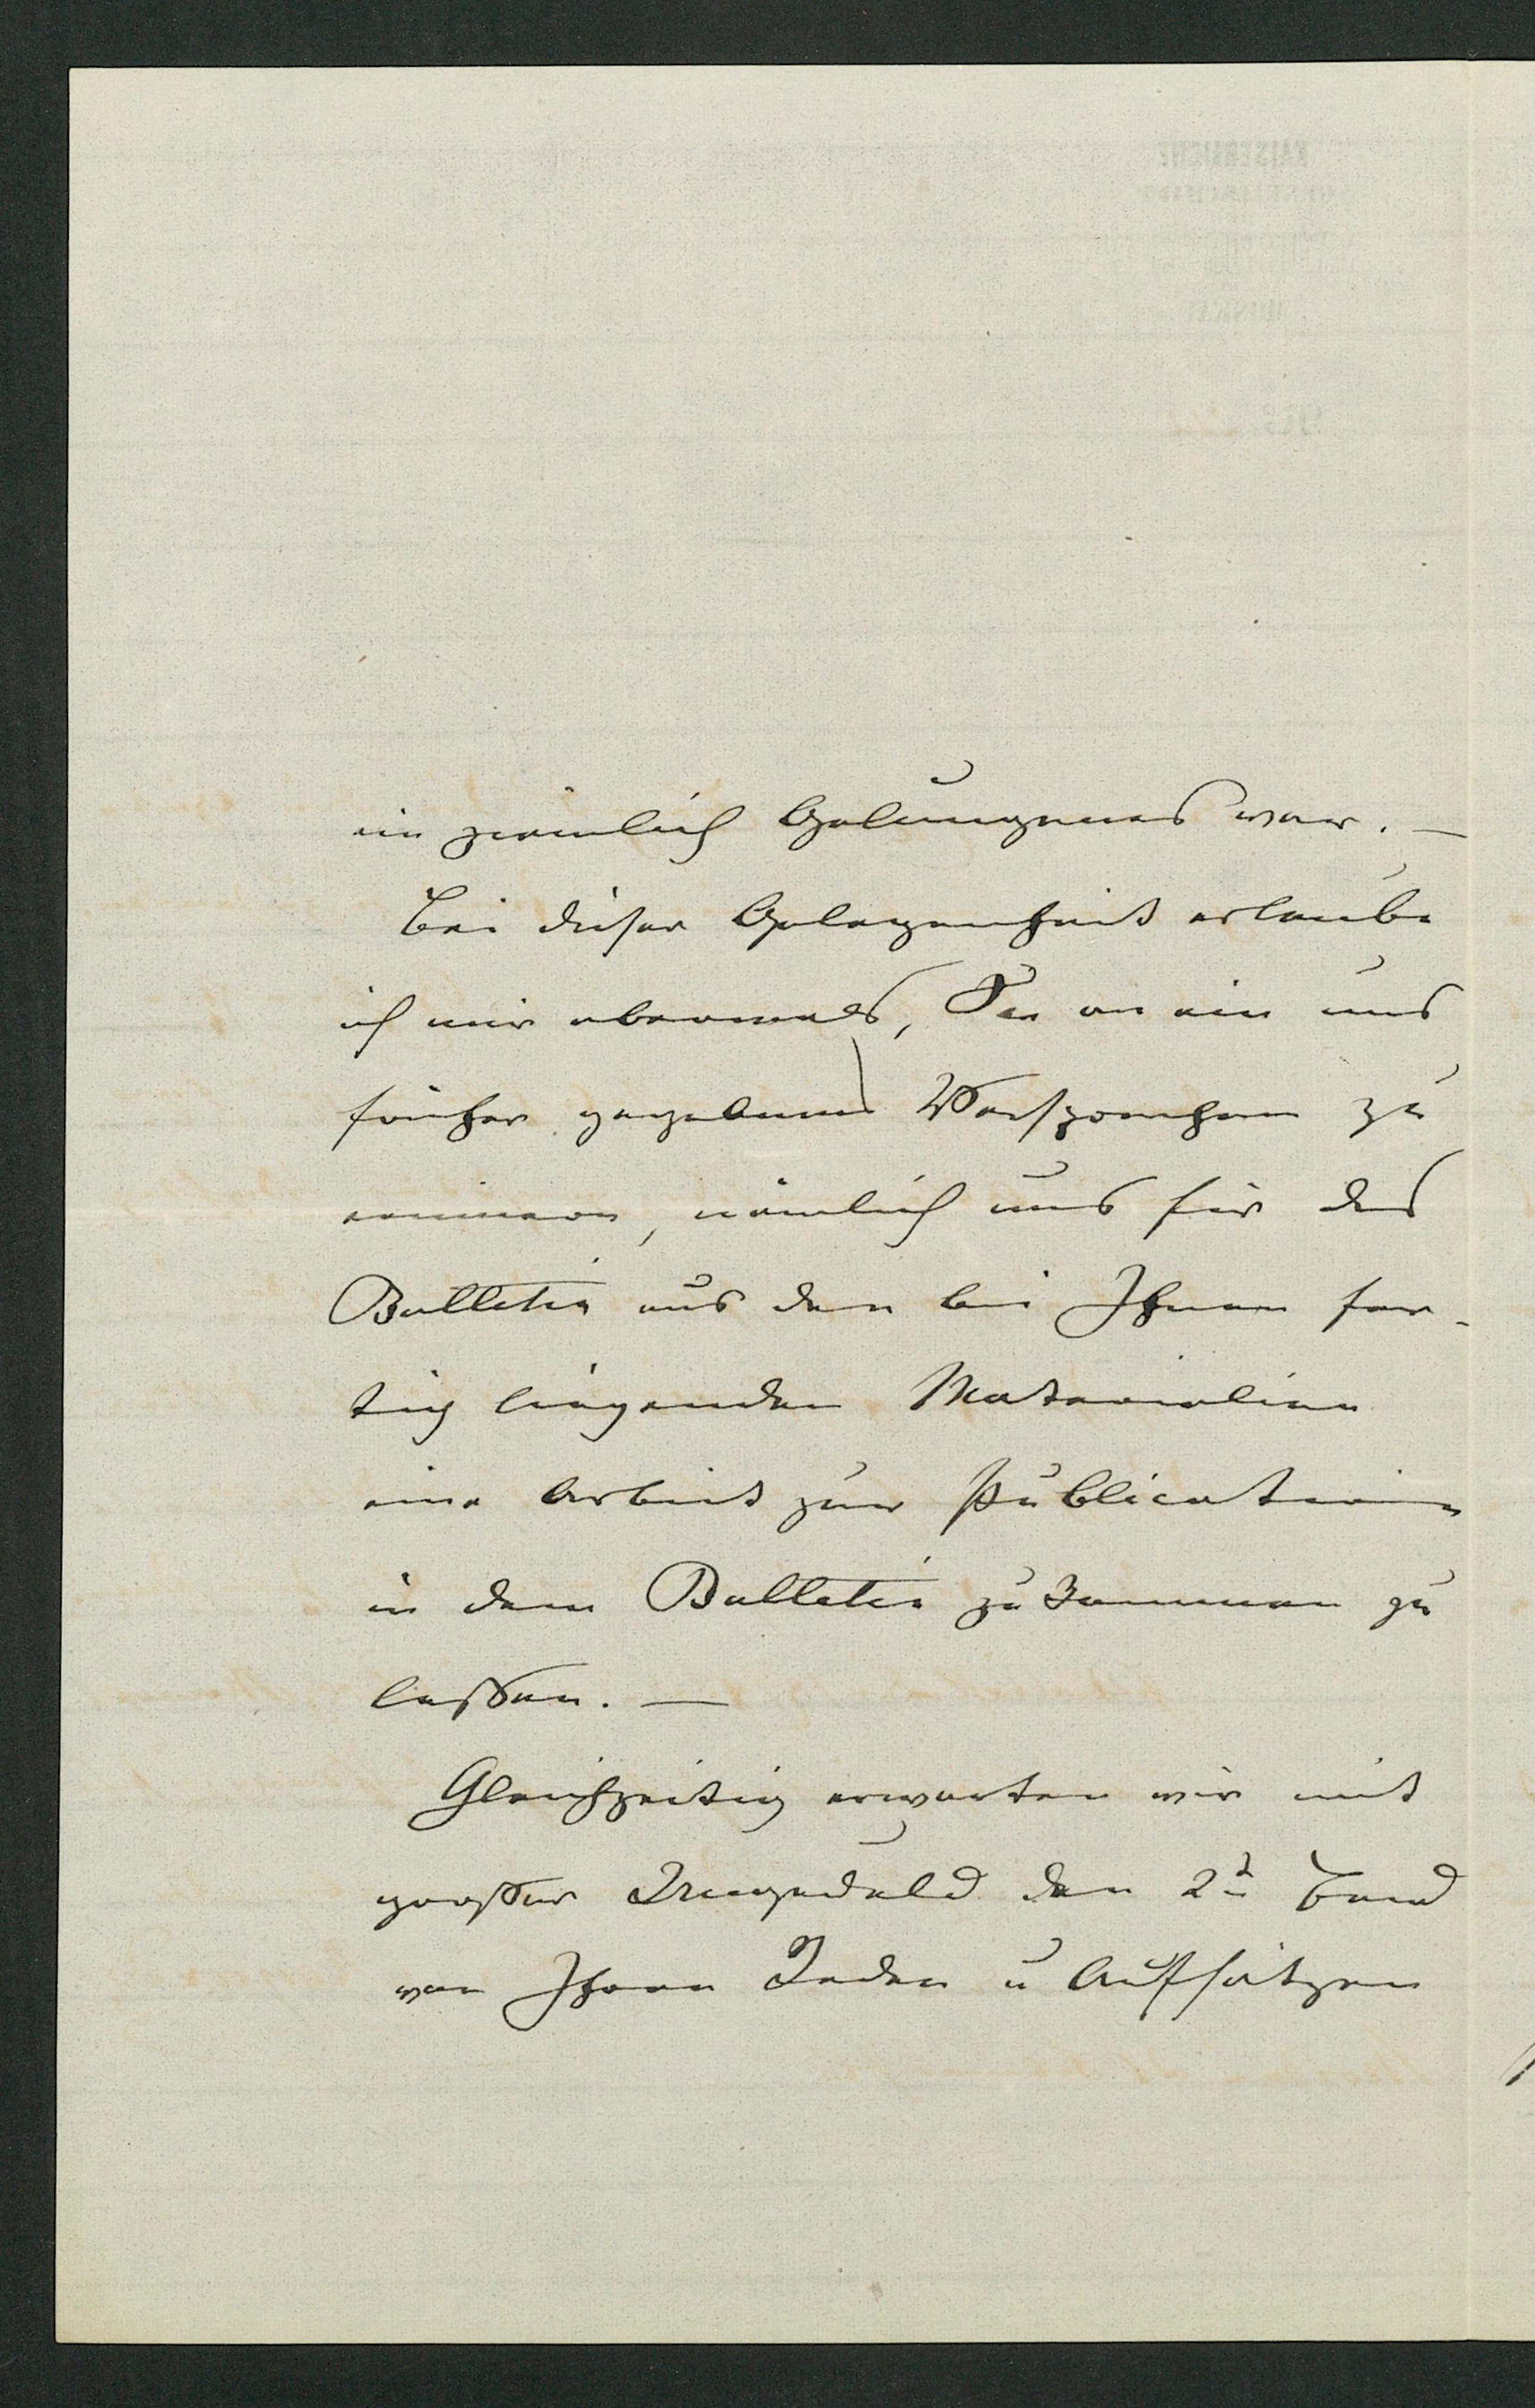 ein ziemlich Gelungenes war. —
Bei dieser Gelegenheit erlaube
ich mir abermals, Sie an ein uns
früher gegebenes Versprechen zu
erinnern, nämlich uns für das
Bulletin aus den bei Ihnen fer-
tig liegenden Materialien
eine Arbeit zur Publication
in dem Bulletin zukommen zu
lassen. —
Gleichzeitig erwarten wir mit
grosser Ungeduld den 2t Band
von Ihren Reden u Aufsätzen